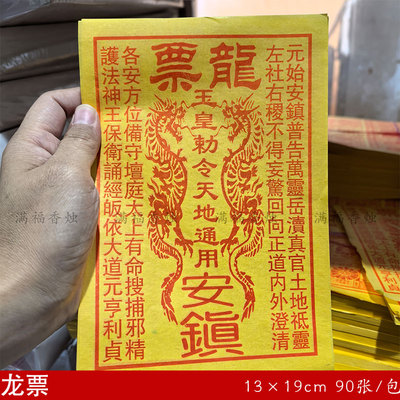 龍票
元始安鎮普告萬靈岳瀆真官土地祇靈
左社右稷不得妄驚回向正道内外澄清
玉皇勅令天地通用
安鎮
各安方位備守壇庭太上有命搜捕邪精
護法神王保衛誦經皈依大道元亨利貞
满福香烛
满福香烛
满福香烛
龙票
13×19cm 90张/包